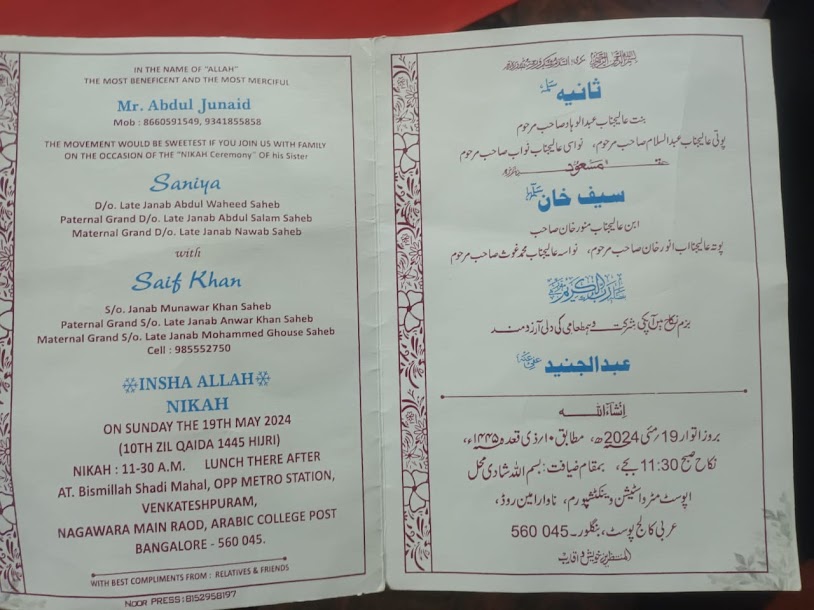 IN THE NAME OF "ALLAH"
THE MOST BENEFICENT AND THE MOST MERCIFUL
Mr. Abdul Junaid
Mob : 8660591549, 9341855858
THE MOVEMENT WOULD BE SWEETEST IF YOU JOIN US WITH FAMILY
ON THE OCCASION OF THE "NIKAH Ceremony" OF his Sister
Saniya
D/o. Late Janab Abdul Waheed Saheb
Paternal Grand D/o. Late Janab Abdul Salam Saheb
Maternal Grand D/o. Late Janab Nawab Saheb
with
Saif Khan
S/o. Janab Munawar Khan Saheb
Paternal Grand S/o. Late Janab Anwar Khan Saheb
Maternal Grand S/o. Late Janab Mohammed Ghouse Saheb
Cell : 985552750
INSHA ALLAH
NIKAH
ON SUNDAY THE 19TH MAY 2024
(10TH ZIL QAIDA 1445 HIJRI)
NIKAH : 11-30 A.M. LUNCH THERE AFTER
AT. Bismillah Shadi Mahal, OPP METRO STATION,
VENKATESHPURAM,
NAGAWARA MAIN RAOD, ARABIC COLLEGE POST
BANGALORE - 560 045.
WITH BEST COMPLIMENTS FROM : RELATIVES & FRIENDS
NOOR PRESS : 8152958197
ثانیہ سلمہا
بنت عالیجناب عبدالوہاد صاحب مرحوم
پوتی عالیجناب عبدالسلام صاحب مرحوم، نواسی عالیجناب نواب صاحب مرحوم
مسعود
سیف خان سلمہ
ابن عالیجناب منور خان صاحب
پوتہ عالیجناب انور خان صاحب مرحوم، نواسہ عالیجناب محمد غوث صاحب مرحوم
بزم نکاح میں آپکی شرکت و ہمطعامی کی دلی آرزومند
عبدالجنید عفی عنہ
انشاءاللہ
بروز اتوار 19/مئی 2024ھ، مطابق ۱۰/ذی قعدہ ۱۴۴۵ء،
نکاح صبح 11:30 بجے، بمقام ضیافت: بسم اللہ شادی محل
اپوسٹ مٹرو اسٹیشن وینکٹشپورم، ناوارا مین روڈ،
عربی کالج پوسٹ، بنگلور۔ 045 560
المنتظرین خویش و اقارب